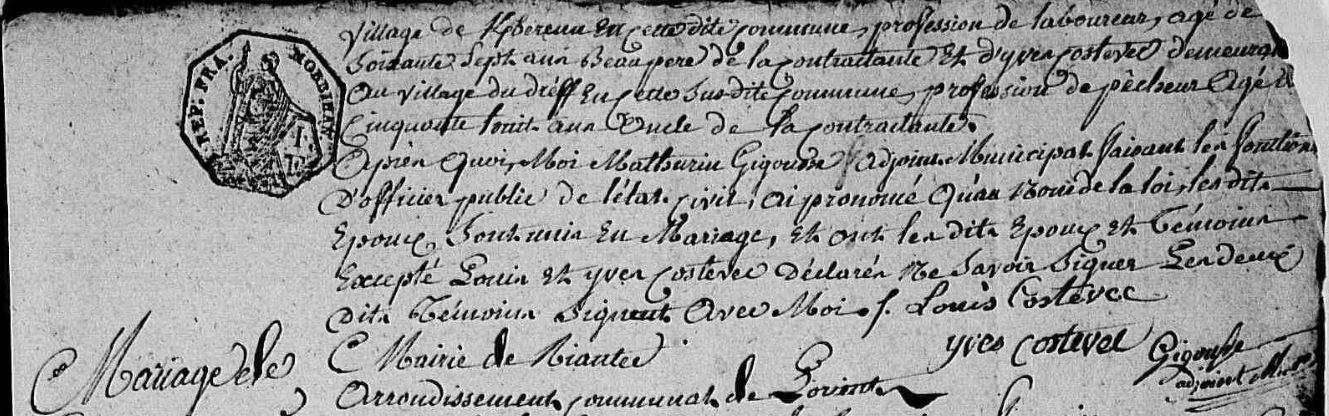 village de Kberenn en cette dite commune, profession de laboureur, agé de
Soixante Sept ans Beaupere de la contractante et d'yves Costevec demeurant
REP. FRA. MORBIHAN
au village du dreff en cette Susdite Commune, profession de pêcheur agé de
Cinquante huit ans oncle de la contractante.
après quoi, Moi Mathurin Gigousse adjoint Municipal faisant les fonctions
D'officier public de l'état civil, ai prononcé qu'au nom de la loi, les dits
Epoux Sont unis en Mariage, et ont les dits Epoux et témoins
Excepté Louis et yves Costevec déclarés ne Savoir Signer Les deux
dits témoins Signent avec Moi. f. Louis Costevec
yves costevec Gigousse
adjoint
Mariage de C Mairie de Riantec
arrondissement communal de Lorient